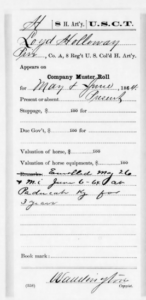 H | 8 H. Art'y. | U.S.C.T.
Loyd Holloway
Pvt., Co. A, 8 Reg't U. S. Col'd H. Art'y.
Appears on
Company Muster Roll
for May & June, 1864.
Present or absent Present
Stoppage, $ 100 for
Due Gov't, $ 100 for
Valuation of horse, $ 100
Valuation of horse equipments, $ 100
Remarks: Enrolled May 26
Mi June 6-64 at
Paducah Ky for
3 years
Book mark:
Waddington
(358) Copyist.